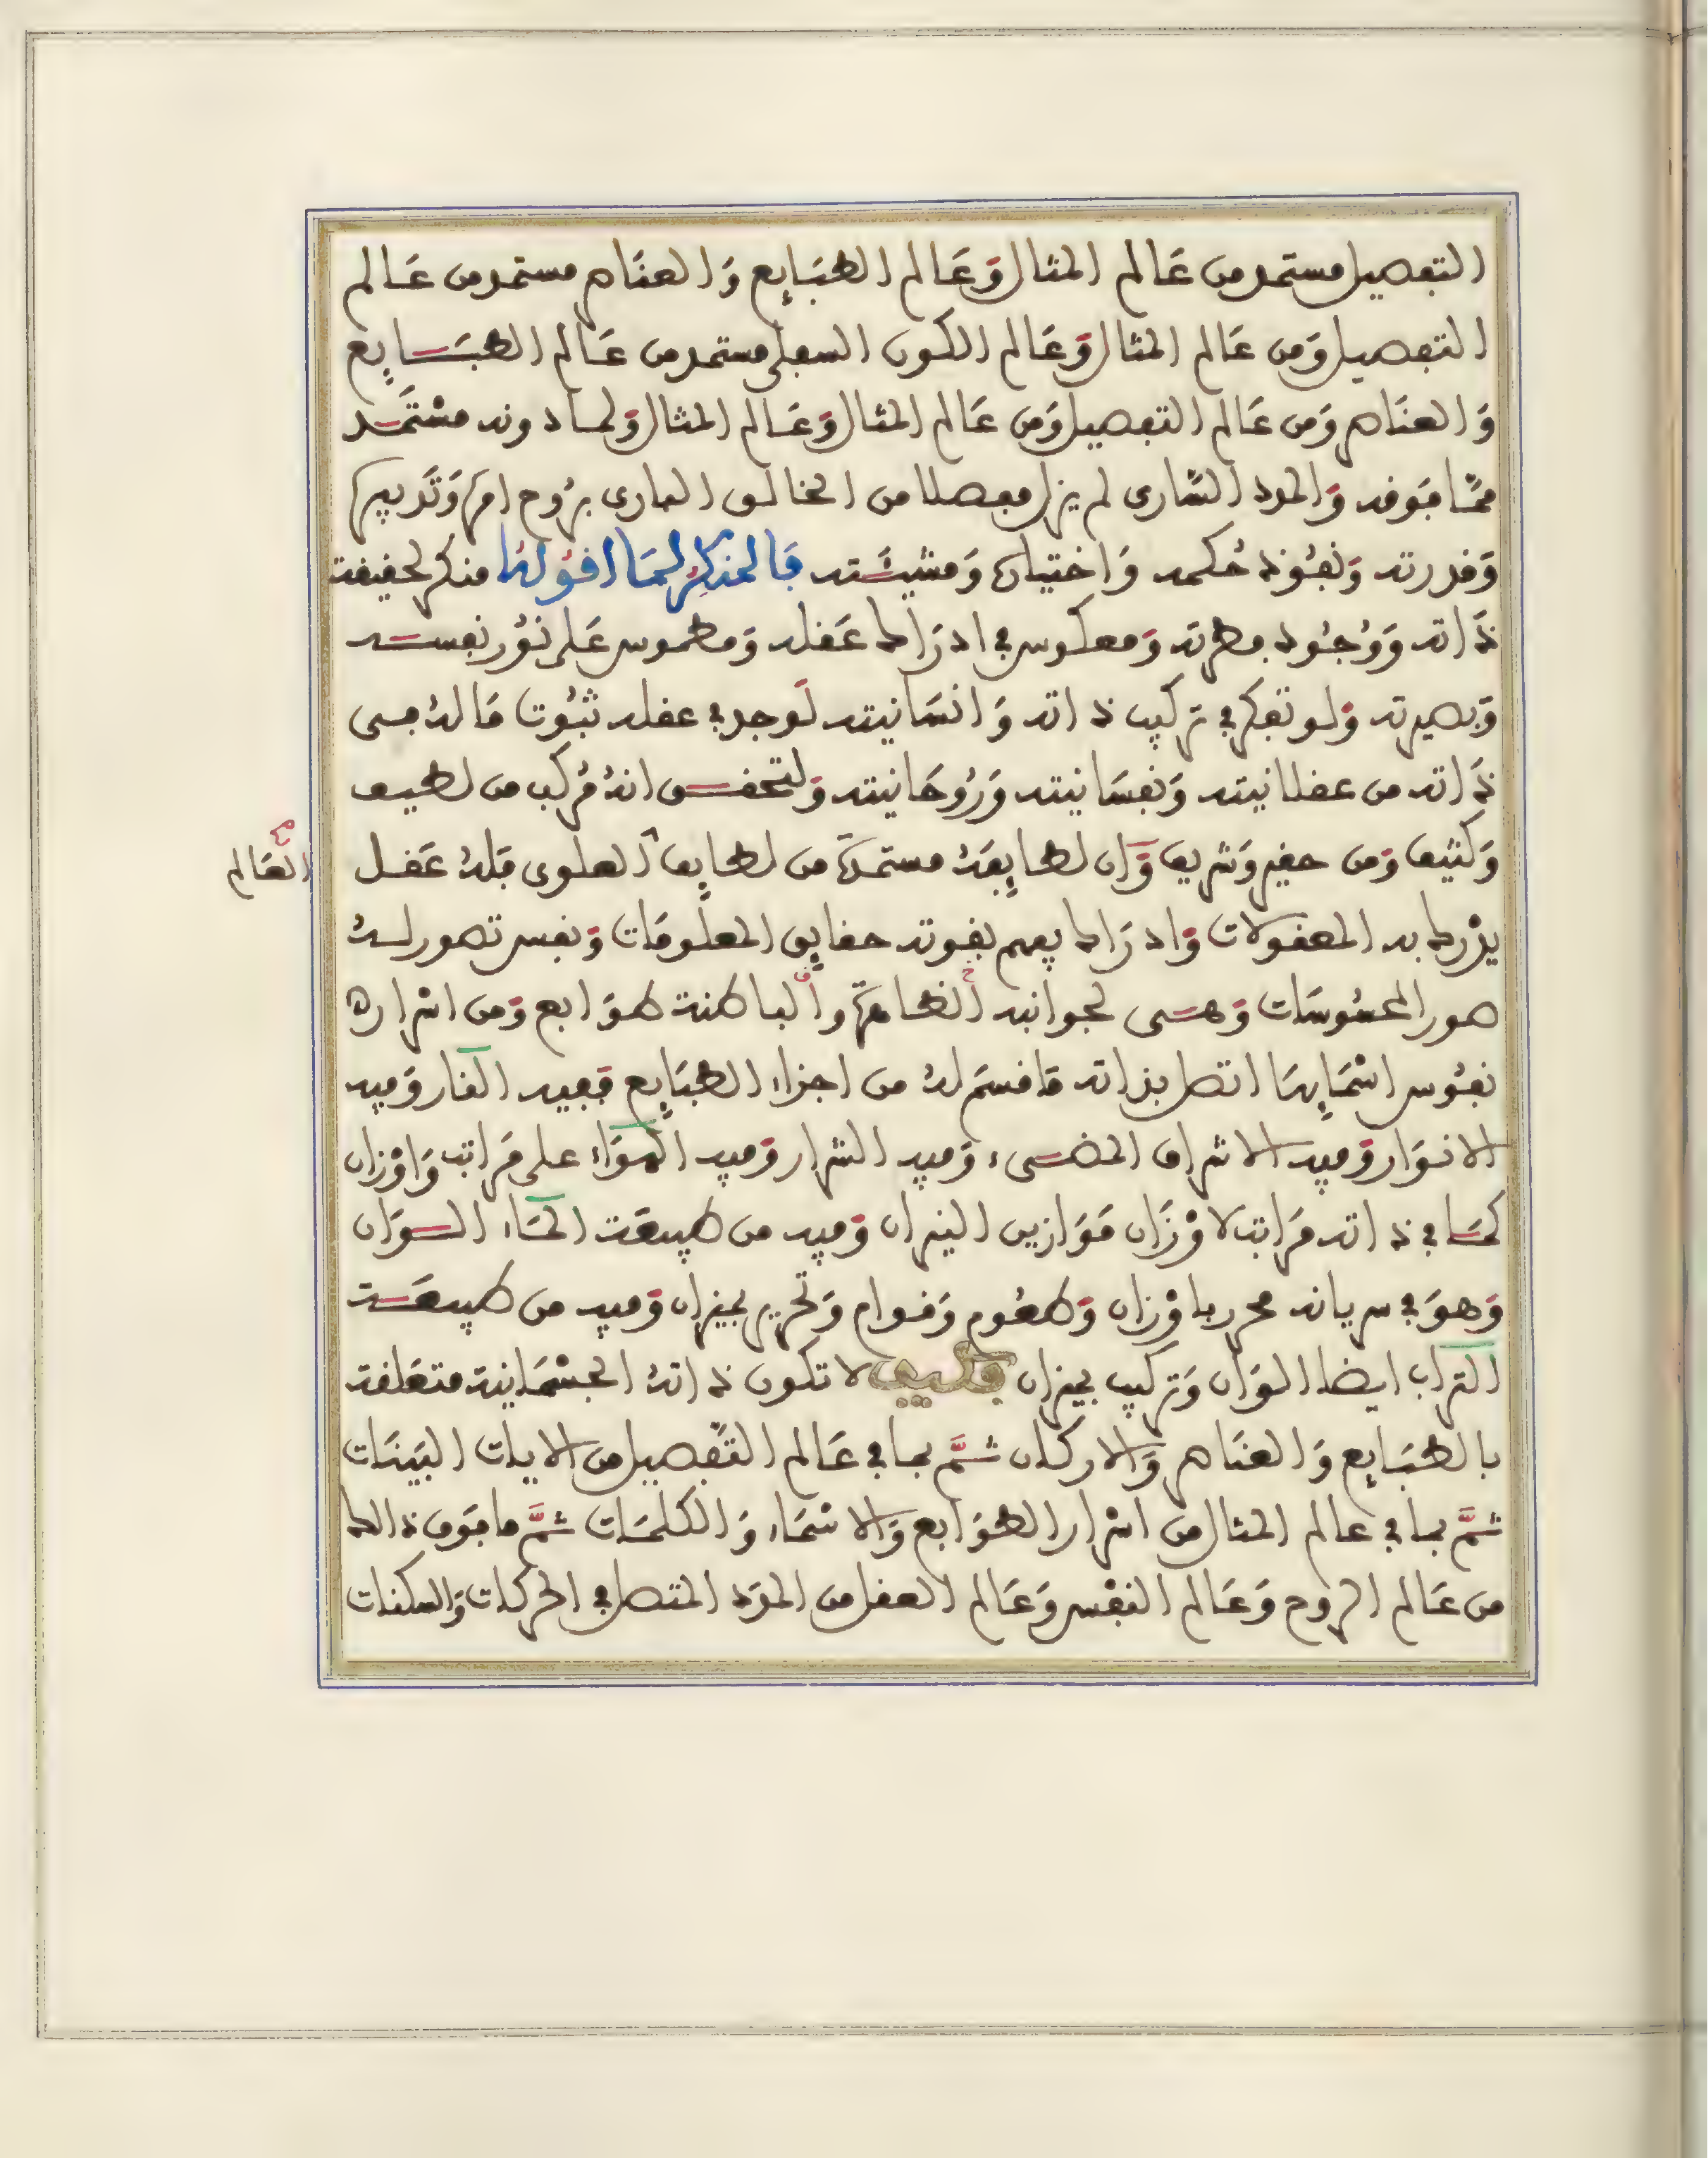 التفصيل مستمد من عَالم المثال وَعَالم الطبَايِع وَالعنَاصر مستمد من عَالم
التفصيل وَمن عَالم المثال وَعَالم الكون السفلى مستمد من عَالم الطبَايِع
وَالعنَاصر وَمن عَالم التفصيل وَمن عَالم المثال وَعَالم المثال وَلما دونه مسْتَمَد
ممّا فوَقه وَالمدد السَّارى لم يزل مفصلا من الخالق البارى برُوح امره وَتَدبيره
وَقدرته وَنفُوذ حُكمه وَاختياره وَمشيئَته فَالمنكِرُ لمَا اقوُلهُ منكر لحقيقة
ذَاته وَوُجُود فطرته وَمعكوس في ادرَاك عَقله وَمطموس عَلى نوُر نفسه
وَبصيرته وَلو تفكر في تركيب ذاته وَانسَانيته لَوجد في عقله ثبُوت مَا لهُ من
ذَاته من عقلانيته وَنفسَانيته وَرُوحَانيته وَلتحقق انهُ مُركب من لطيف
وَكثيف وَمن حقير وَشريف وَّان لطايفَهُ مستمدة من لطايف العلوى فلهُ عَقل
العَالم
يدْرك به المعقولات وَادرَاك يفهم بقوته حقايِق المعلومَات وَنفس تصور لهُ
صور المحسُوسَات وَحسى لجوانبه الظاهرة والباطنة طوَابع وَمن اسْراره
نفُوس اسْمَايِهَا اتصل بذاته مَا قسم لهُ من اجزاء الطبَايِع فَفيه النار وَفيه
الانوَار وَفيه الاشراق المضىء وَفيه الشرار وَفيه الهوَاء على مَراتب وَاوْزان
كمَا في ذاته مَراتب لاوْزَان مَوَازين النيران وَفيه من طبيعَة المَاء السوَان
وَهوَ في سريانه محرر باوْزان وَطعُوم وَقوام وَتحرير بميزان وَفيه من طبيعَة
التراب ايضا الوَان وَتركيب بميزان فكيف لا تكون ذاتهُ الجسْمَانية متعَلقة
بالطبَايِع وَالعنَاصر وَالاركان ثمَّ بما في عَالم التّفصيل من الايات البَينَات
ثمَّ بما في عالم المثال من اسْرار الطوَابع وَالاسْمَاء وَالكلمَات ثمَّ ما فوَق ذالك
من عَالم الروح وَعَالم النفْس وَعَالم العقل من المدَد المتصل في الحركات وَالسكنات